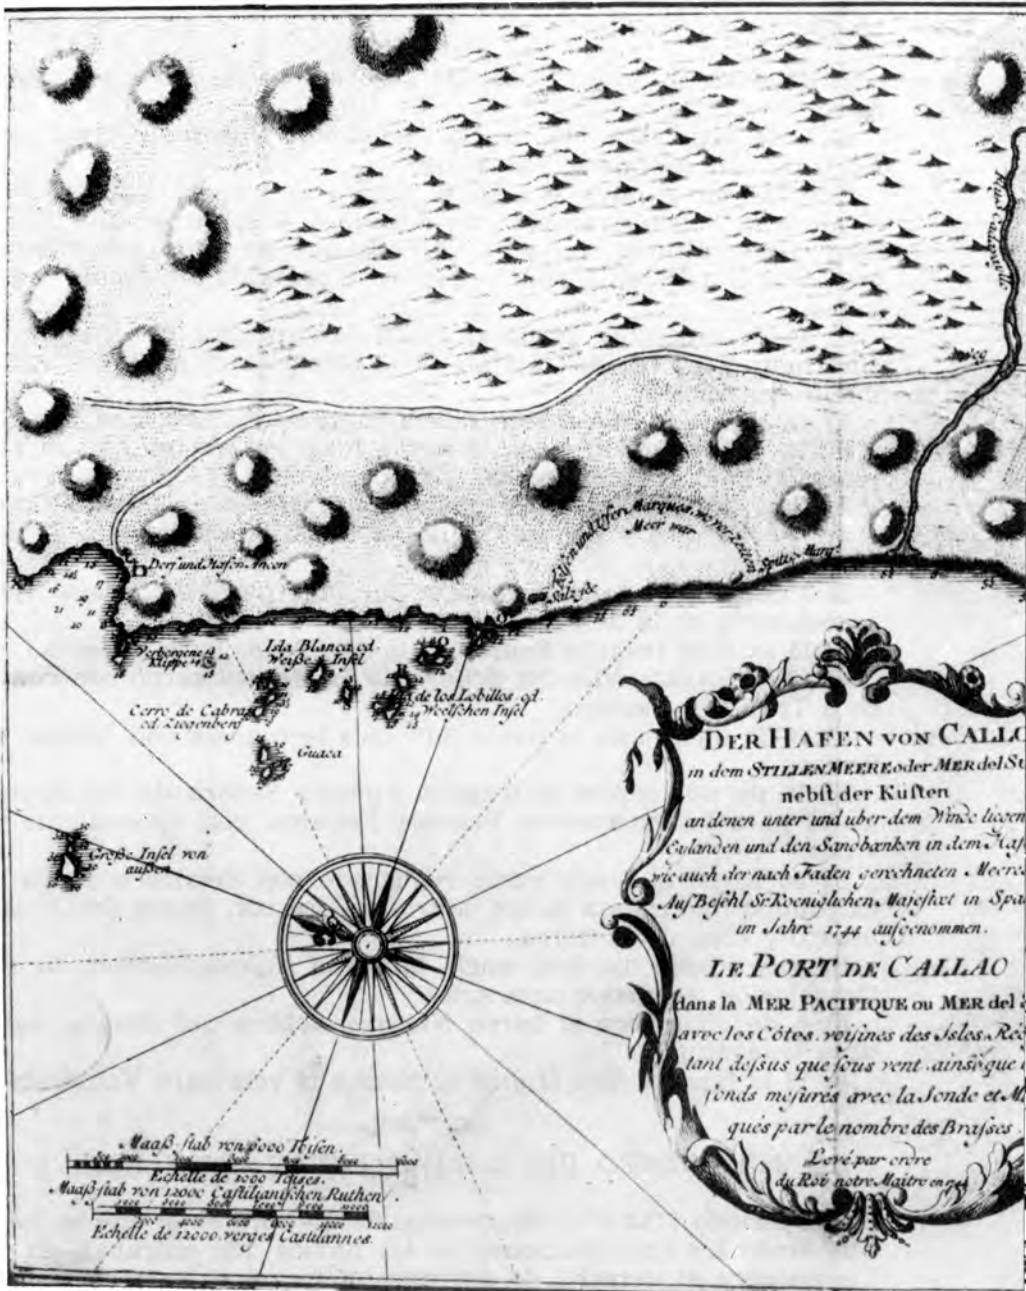 Dorf und Hafen Ancon
Felsen und Ufer Marques, wo vor Zeiten
Meer war
Spitze Marq.
Salzsöde
Verborgene
Klippe
Isla Blanca od
Weiße Insel
Cerro de Cabras
od Ziegenberg
de los Lobillos od
Woelfchen Insel
Guaca
Große Insel von
außen
DER HAFEN VON CALLO
in dem STILLEN MEERE oder MER del Su
nebst der Kusten
an denen unter und uber dem Winde liegen
Eylanden und den Sandbænken in dem Haf
wie auch der nach Faden gerechneten Meeres
Auf Befehl Sr Koeniglichen Majestæt in Spa
im Jahre 1744 aufgenommen.
LE PORT DE CALLAO
dans la MER PACIFIQUE ou MER del S
avec les Côtes voisines des Isles Réc
tant dessus que sous vent ainsique
fonds mesurés avec la Sonde et M
qués par le nombre des Brasses.
Levé par ordre
du Roi notre Maitre en 1744
Maaß stab von 6000 Toisen.
Echelle de 1000 Toises.
Maaß stab von 12000 Castilianischen Ruthen
Echelle de 12000 verges Castilannes.